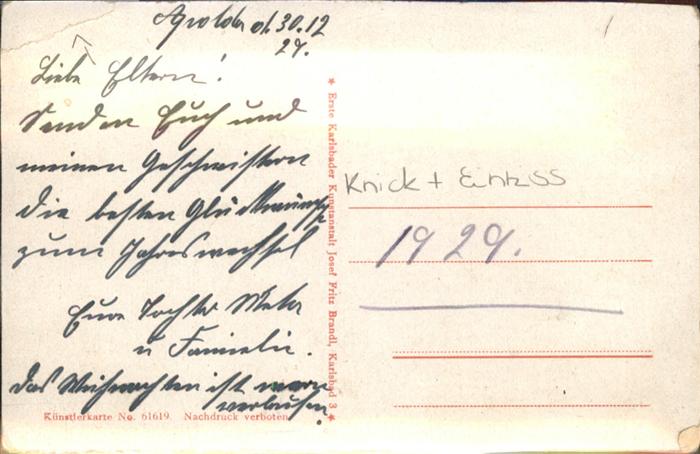 Apolda d. 30.12
29.
Liebe Eltern!
Senden Euch und
meinen Geschwistern
die besten Glückwünsche
zum Jahreswechsel
Eure Tochter Meta
u Familie.
Das Weihnachten ist
verlaufen.
Künstlerkarte No. 61619. Nachdruck verboten.
* Erste Karlsbader Kunstanstalt Josef Fritz Brandl, Karlsbad 3 *
Knick + Einriss
1929.